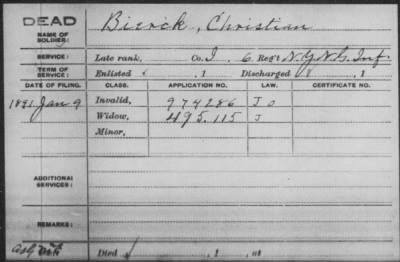 DEAD
NAME OF SOLDIER:
Bierck, Christian
SERVICE:
Late rank, Co. I, 6 Reg't N.Y.N.G. Inf.
TERM OF SERVICE:
Enlisted , 1 Discharged , 1
DATE OF FILING. CLASS. APPLICATION NO. LAW. CERTIFICATE NO.
1891 Jan. 9 Invalid, 974286 J
Widow, 495.115 J
Minor,
ADDITIONAL SERVICES:
REMARKS:
Died , 1 , at